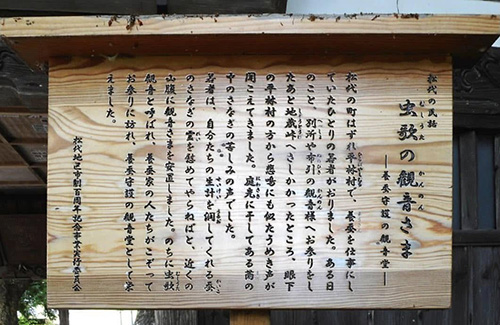 松代の民話
虫歌の観音さま
むしうた
かんのん
―養蚕守護の観音堂―
松代の町はずれ平林村で、養蚕を仕事にし
ていたひとりの若者がおりました。ある日
のこと、別所や布引の観音様へお参りをし
たあと地蔵峠へさしかかったところ、眼下
の平林村の方から悲鳴にも似たうめき声が
聞こえてきました。庭先に干してある繭の
中のさなぎの苦しみの声でした。
若者は、自分たちの生計を潤してくれる蚕
のさなぎの霊を慰めてやらねばと、近くの
山腹に観音さまを安置しました。のちに虫歌
観音と呼ばれ、養蚕家の人たちがこぞって
お参りに訪れ、養蚕守護の観音堂として栄
えました。
松代地区市制百周年記念事業実行委員会